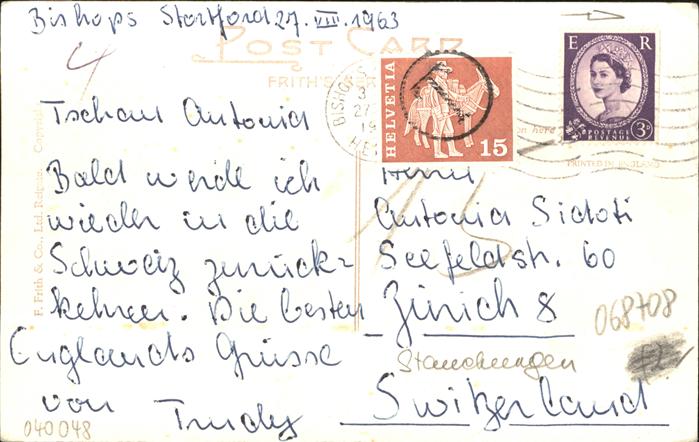 Bishops Stortford 27. VIII. 1963
POST CARD
FRITH'S SERIES
4
Tschau Antonia
Bald werde ich
wieder in die
Schweiz zurück=
kehren. Die besten
Englands Grüsse
von Trudy
040048
F. Frith & Co., Ltd. Reigate. Copyright
BISHOP'S
27
19
HELVETIA
15
E R
3D
POSTAGE
REVENUE
on here
PRINTED IN ENGLAND
Herrn
Antonia Sidoti
Seefeldstr. 60
Zürich 8
068708
Stauchungen
Switzerland